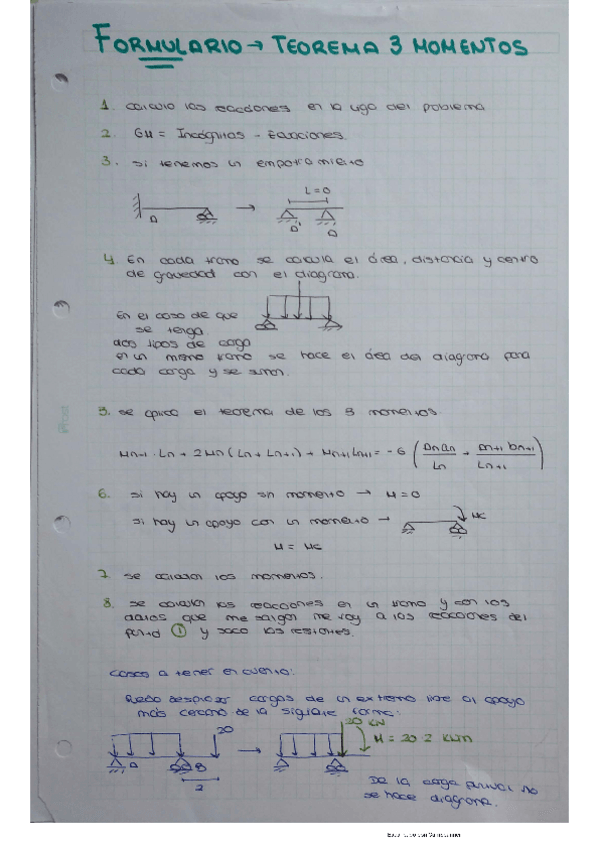 FORMULARIO → TEOREMA 3 MOMENTOS
1. Calculo las reacciones en la viga del problema
2. GH = Incógnitas - Ecuaciones
3. Si tenemos un empotramiento
L=0
A → A' A
4. En cada tramo se calcula el área, distancia y centro
de gravedad con el diagrama.
En el caso de que
se tenga
dos tipos de carga
en un mismo tramo se hace el área del diagrama para
cada carga y se suman.
5. Se aplica el teorema de los 3 momentos.
Mn-1 · Ln + 2Mn (Ln + Ln+1) + Mn+1 Ln+1 = -6 ( An an / Ln + An+1 bn+1 / Ln+1 )
6. Si hay un apoyo sin momento → M=0
Si hay un apoyo con un momento → Mc
M = Mc
7. Se calculan los momentos.
8. Se calculan las reacciones en un tramo y con los
datos que me salgan me voy a las reacciones del
punto ① y saco las restantes.
Cosas a tener en cuenta:
Puedo desplazar cargas de un extremo libre al apoyo
más cercano de la siguiente forma:
20
20 KN
M = 20·2 KNm
A B →
2
De la carga puntual no
se hace diagrama.